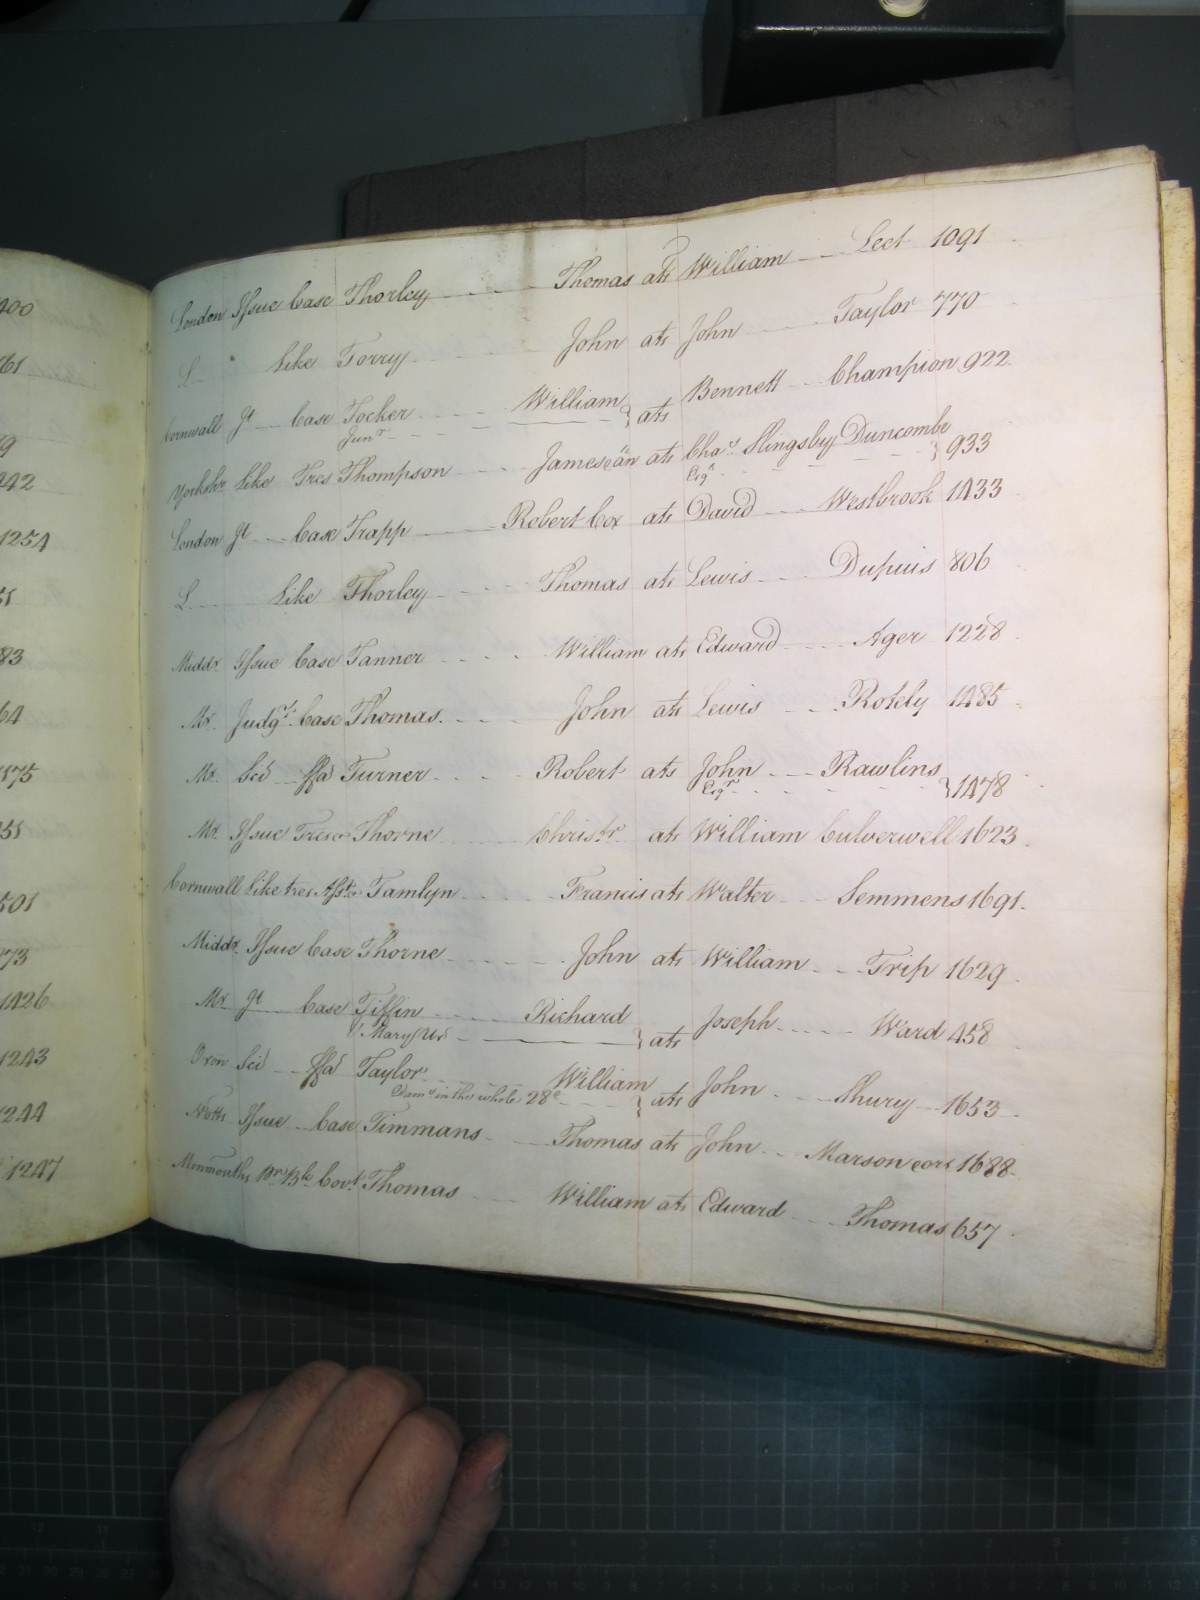 London Issue Case Thorley Thomas ats William Lect 1091
L Like Torry John ats John Taylor 770
Cornwall Jt Case Tocker William } ats Bennett Champion 922
Junr
Yorkshr Like Tres Thompson James eän ats Chas Slingsby Duncombe } 933
Esqr
London Jt Case Trapp Robert Cox ats David Westbrook 1433
L Like Thorley Thomas ats Lewis Dupuis 806
Middx Issue Case Tanner William ats Edward Ager 1228
Mx Judgt Case Thomas John ats Lewis Rotely 1485
Mx Scd ffa Turner Robert ats John Rawlins } 1478
Esqr
Mx Issue Treso Thorne Christr ats William Culverwell 1623
Cornwall Like tres Tamlyn Francis ats Walter Semmens 1691
Middx Issue Case Thorne John ats William Trip 1629
Mx Jt Case Tiffin Richard } ats Joseph Ward 458
& Mary Ux
Oxon Scd ffa Taylor William } ats John Shury 1653
Dams in the whole 28£
Notts Issue Case Timmans Thomas ats John Marson 1688
Monmouths Covt Thomas William ats Edward Thomas 657
400
61
9
442
1254
51
83
64
1175
51
501
73
1426
1243
1244
1247